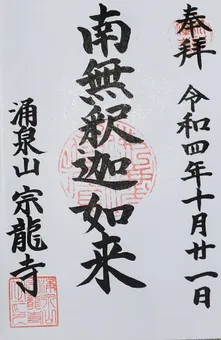 奉拝
令和四年十月廿一日
南無釈迦如来
涌泉山 宗龍寺